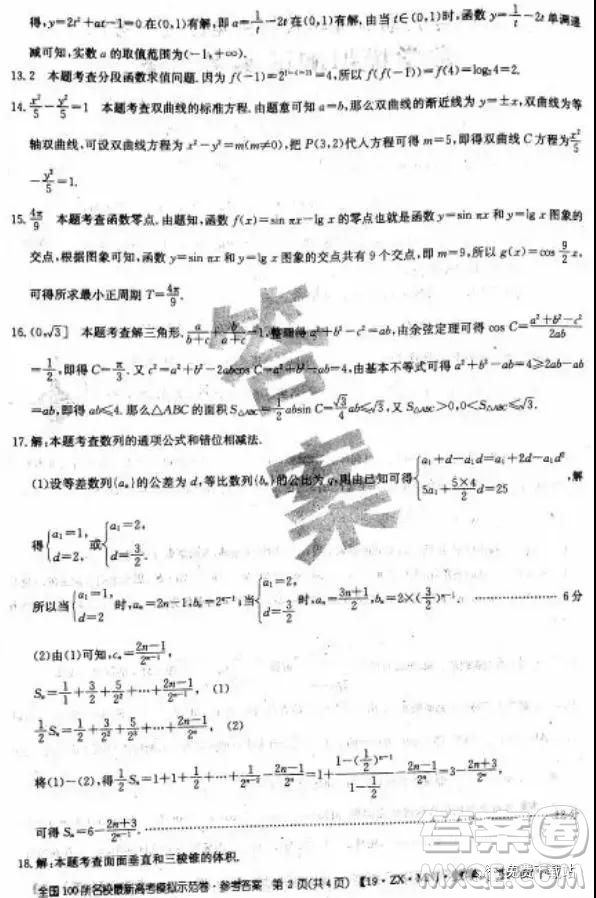 得,y=2t²+at-1=0在(0,1)有解,即a=1/t-2t在(0,1)有解,由当t∈(0,1)时,函数y=1/t-2t单调递
减可知,实数a的取值范围为(-1,+∞).
13.2 本题考查分段函数求值问题.因为f(-1)=2^{1-(-1)}=4,所以f(f(-1))=f(4)=log₂4=2.
14.x²/5-y²/5=1 本题考查双曲线的标准方程.由题意可知a=b,那么双曲线的渐近线为y=±x,双曲线为等
轴双曲线,可设双曲线方程为x²-y²=m(m≠0),把P(3,2)代人方程可得m=5,即得双曲线C方程为x²/5
-y²/5=1.
15.4π/9 本题考查函数零点.由题知,函数f(x)=sin πx-lg x的零点也就是函数y=sin πx和y=lg x图象的
交点,根据图象可知,函数y=sin πx和y=lg x图象的交点共有9个交点,即m=9,所以g(x)=cos 9/2 x,
可得所求最小正周期T=4π/9.
16.(0,√3] 本题考查解三角形.a/(b+c)+b/(a+c)=1,整理得a²+b²-c²=ab,由余弦定理可得cos C=(a²+b²-c²)/2ab
=1/2,即得C=π/3.又c²=a²+b²-2abcos C=a²+b²-ab=4,由基本不等式可得a²+b²-ab=4≥2ab-ab
=ab,即得ab≤4.那么△ABC的面积S△ABC=1/2 absin C=√3/4 ab≤√3,又S△ABC>0,0<S△ABC≤√3.
17.解:本题考查数列的通项公式和错位相减法.
(1)设等差数列{aₙ}的公差为d,等比数列{bₙ}的公比为q,则由已知可得{a₁+d-a₁d=a₁+2d-a₁d² 5a₁+5×4/2 d=25,解
得{a₁=1, d=2,或{a₁=2, d=3/2.
所以当{a₁=1, d=2时,aₙ=2n-1,bₙ=2ⁿ⁻¹;当{a₁=2, d=3/2时,aₙ=(3n+1)/2,bₙ=2×(3/2)ⁿ⁻¹. 6分
(2)由(1)可知,cₙ=(2n-1)/2ⁿ⁻¹,
Sₙ=1/1+3/2+5/2²+…+(2n-1)/2ⁿ⁻¹, (1)
1/2 Sₙ=1/2+3/2²+5/2³+…+(2n-1)/2ⁿ, (2)
将(1)-(2),得1/2 Sₙ=1+1+1/2+…+1/2ⁿ⁻²-(2n-1)/2ⁿ=1+(1-(1/2)ⁿ⁻¹)/(1-1/2)-(2n-1)/2ⁿ=3-(2n+3)/2ⁿ,
可得Sₙ=6-(2n+3)/2ⁿ⁻¹. 12分
18.解:本题考查面面垂直和三棱锥的体积.
全国100所名校最新高考模拟示范卷·参考答案 第2页(共4页) 【19·ZX·MNJ·
答案